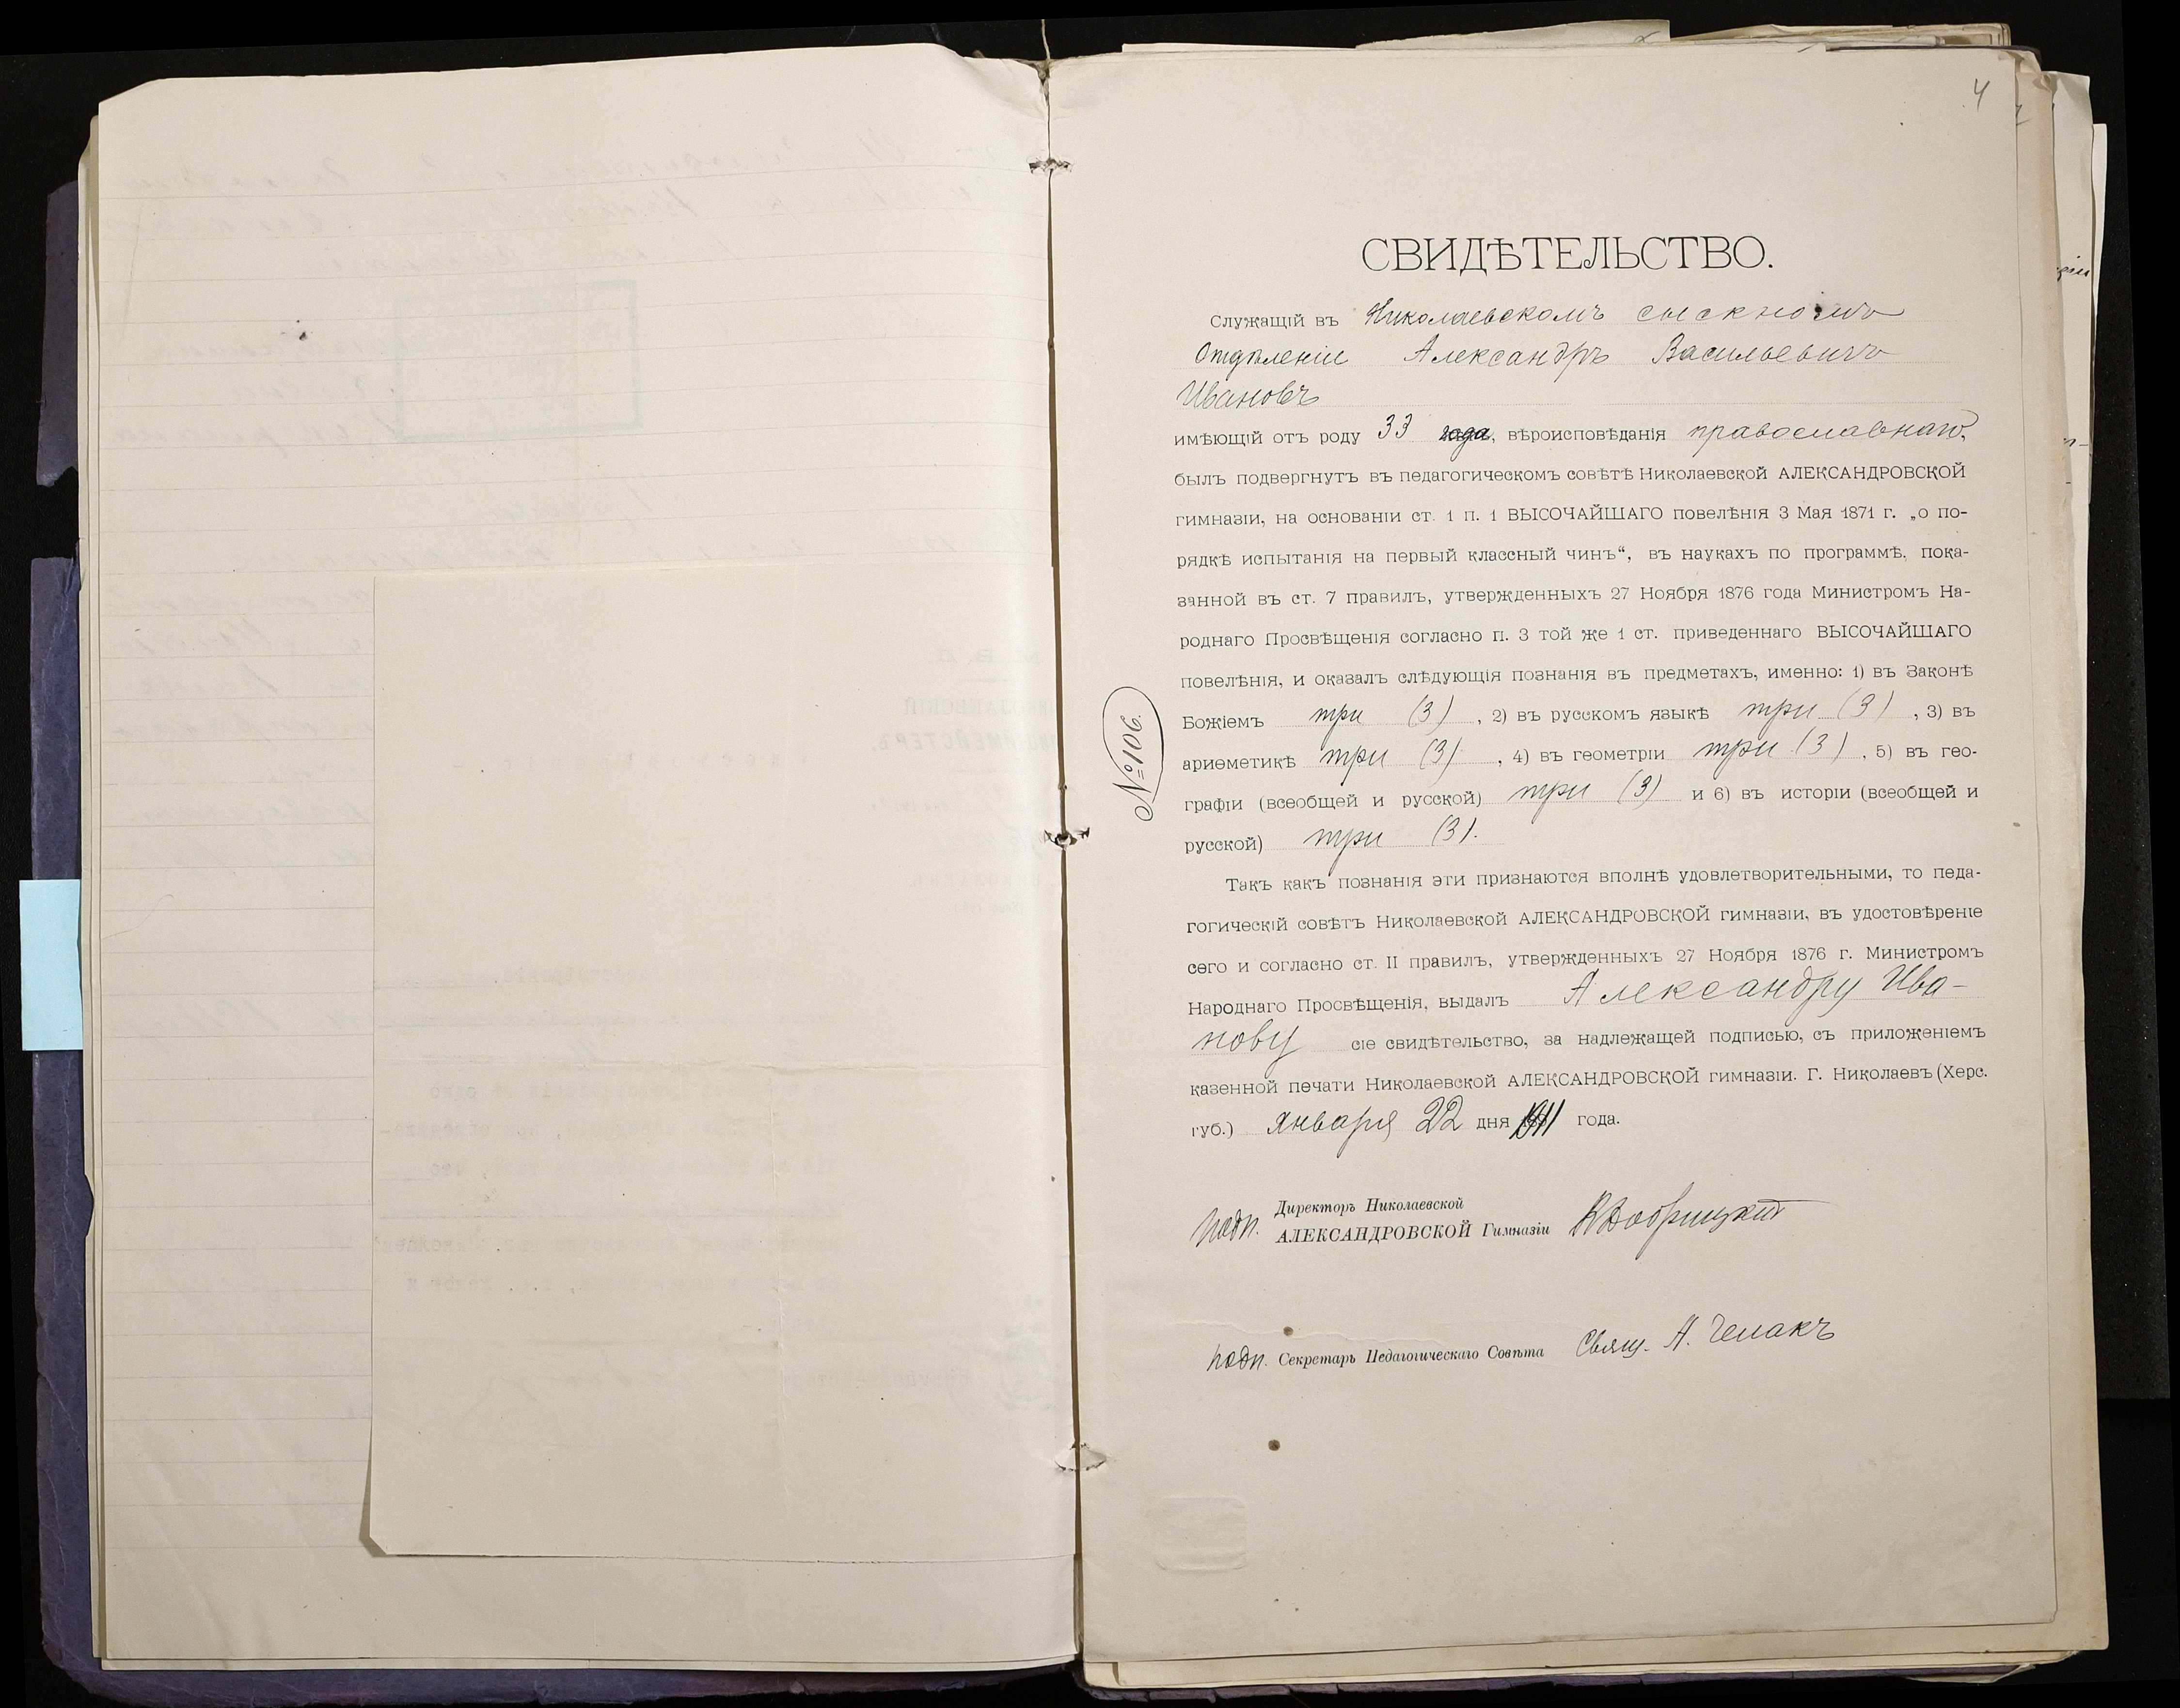 4
СВИДѢТЕЛЬСТВО.
Служащій въ Николаевскомъ сыскномъ
Отдѣленіи Александръ Васильевичъ
Ивановъ
имѣющій отъ роду 33 года, вѣроисповѣданія православнаго,
былъ подвергнутъ въ педагогическомъ совѣтѣ Николаевской АЛЕКСАНДРОВСКОЙ
гимназіи, на основаніи ст. 1 п. 1 ВЫСОЧАЙШАГО повелѣнія 3 Мая 1871 г. „о по-
рядкѣ испытанія на первый классный чинъ“, въ наукахъ по программѣ, пока-
занной въ ст. 7 правилъ, утвержденныхъ 27 Ноября 1876 года Министромъ На-
роднаго Просвѣщенія согласно п. 3 той же 1 ст. приведеннаго ВЫСОЧАЙШАГО
повелѣнія, и оказалъ слѣдующія познанія въ предметахъ, именно: 1) въ Законѣ
Божіемъ три (3) , 2) въ русскомъ языкѣ три (3) , 3) въ
ариѳметикѣ три (3) , 4) въ геометріи три (3) , 5) въ гео-
графіи (всеобщей и русской) три (3) и 6) въ исторіи (всеобщей и
русской) три (3).
№ 106.
Такъ какъ познанія эти признаются вполнѣ удовлетворительными, то педа-
гогическій совѣтъ Николаевской АЛЕКСАНДРОВСКОЙ гимназіи, въ удостовѣреніе
сего и согласно ст. II правилъ, утвержденныхъ 27 Ноября 1876 г. Министромъ
Народнаго Просвѣщенія, выдалъ Александру Ива-
нову сіе свидѣтельство, за надлежащей подписью, съ приложеніемъ
казенной печати Николаевской АЛЕКСАНДРОВСКОЙ гимназіи. Г. Николаевъ (Херс.
губ.) Января 22 дня 1911 года.
подп. Директоръ Николаевской
АЛЕКСАНДРОВСКОЙ Гимназіи
подп. Секретарь Педагогическаго Совѣта Свящ. А.